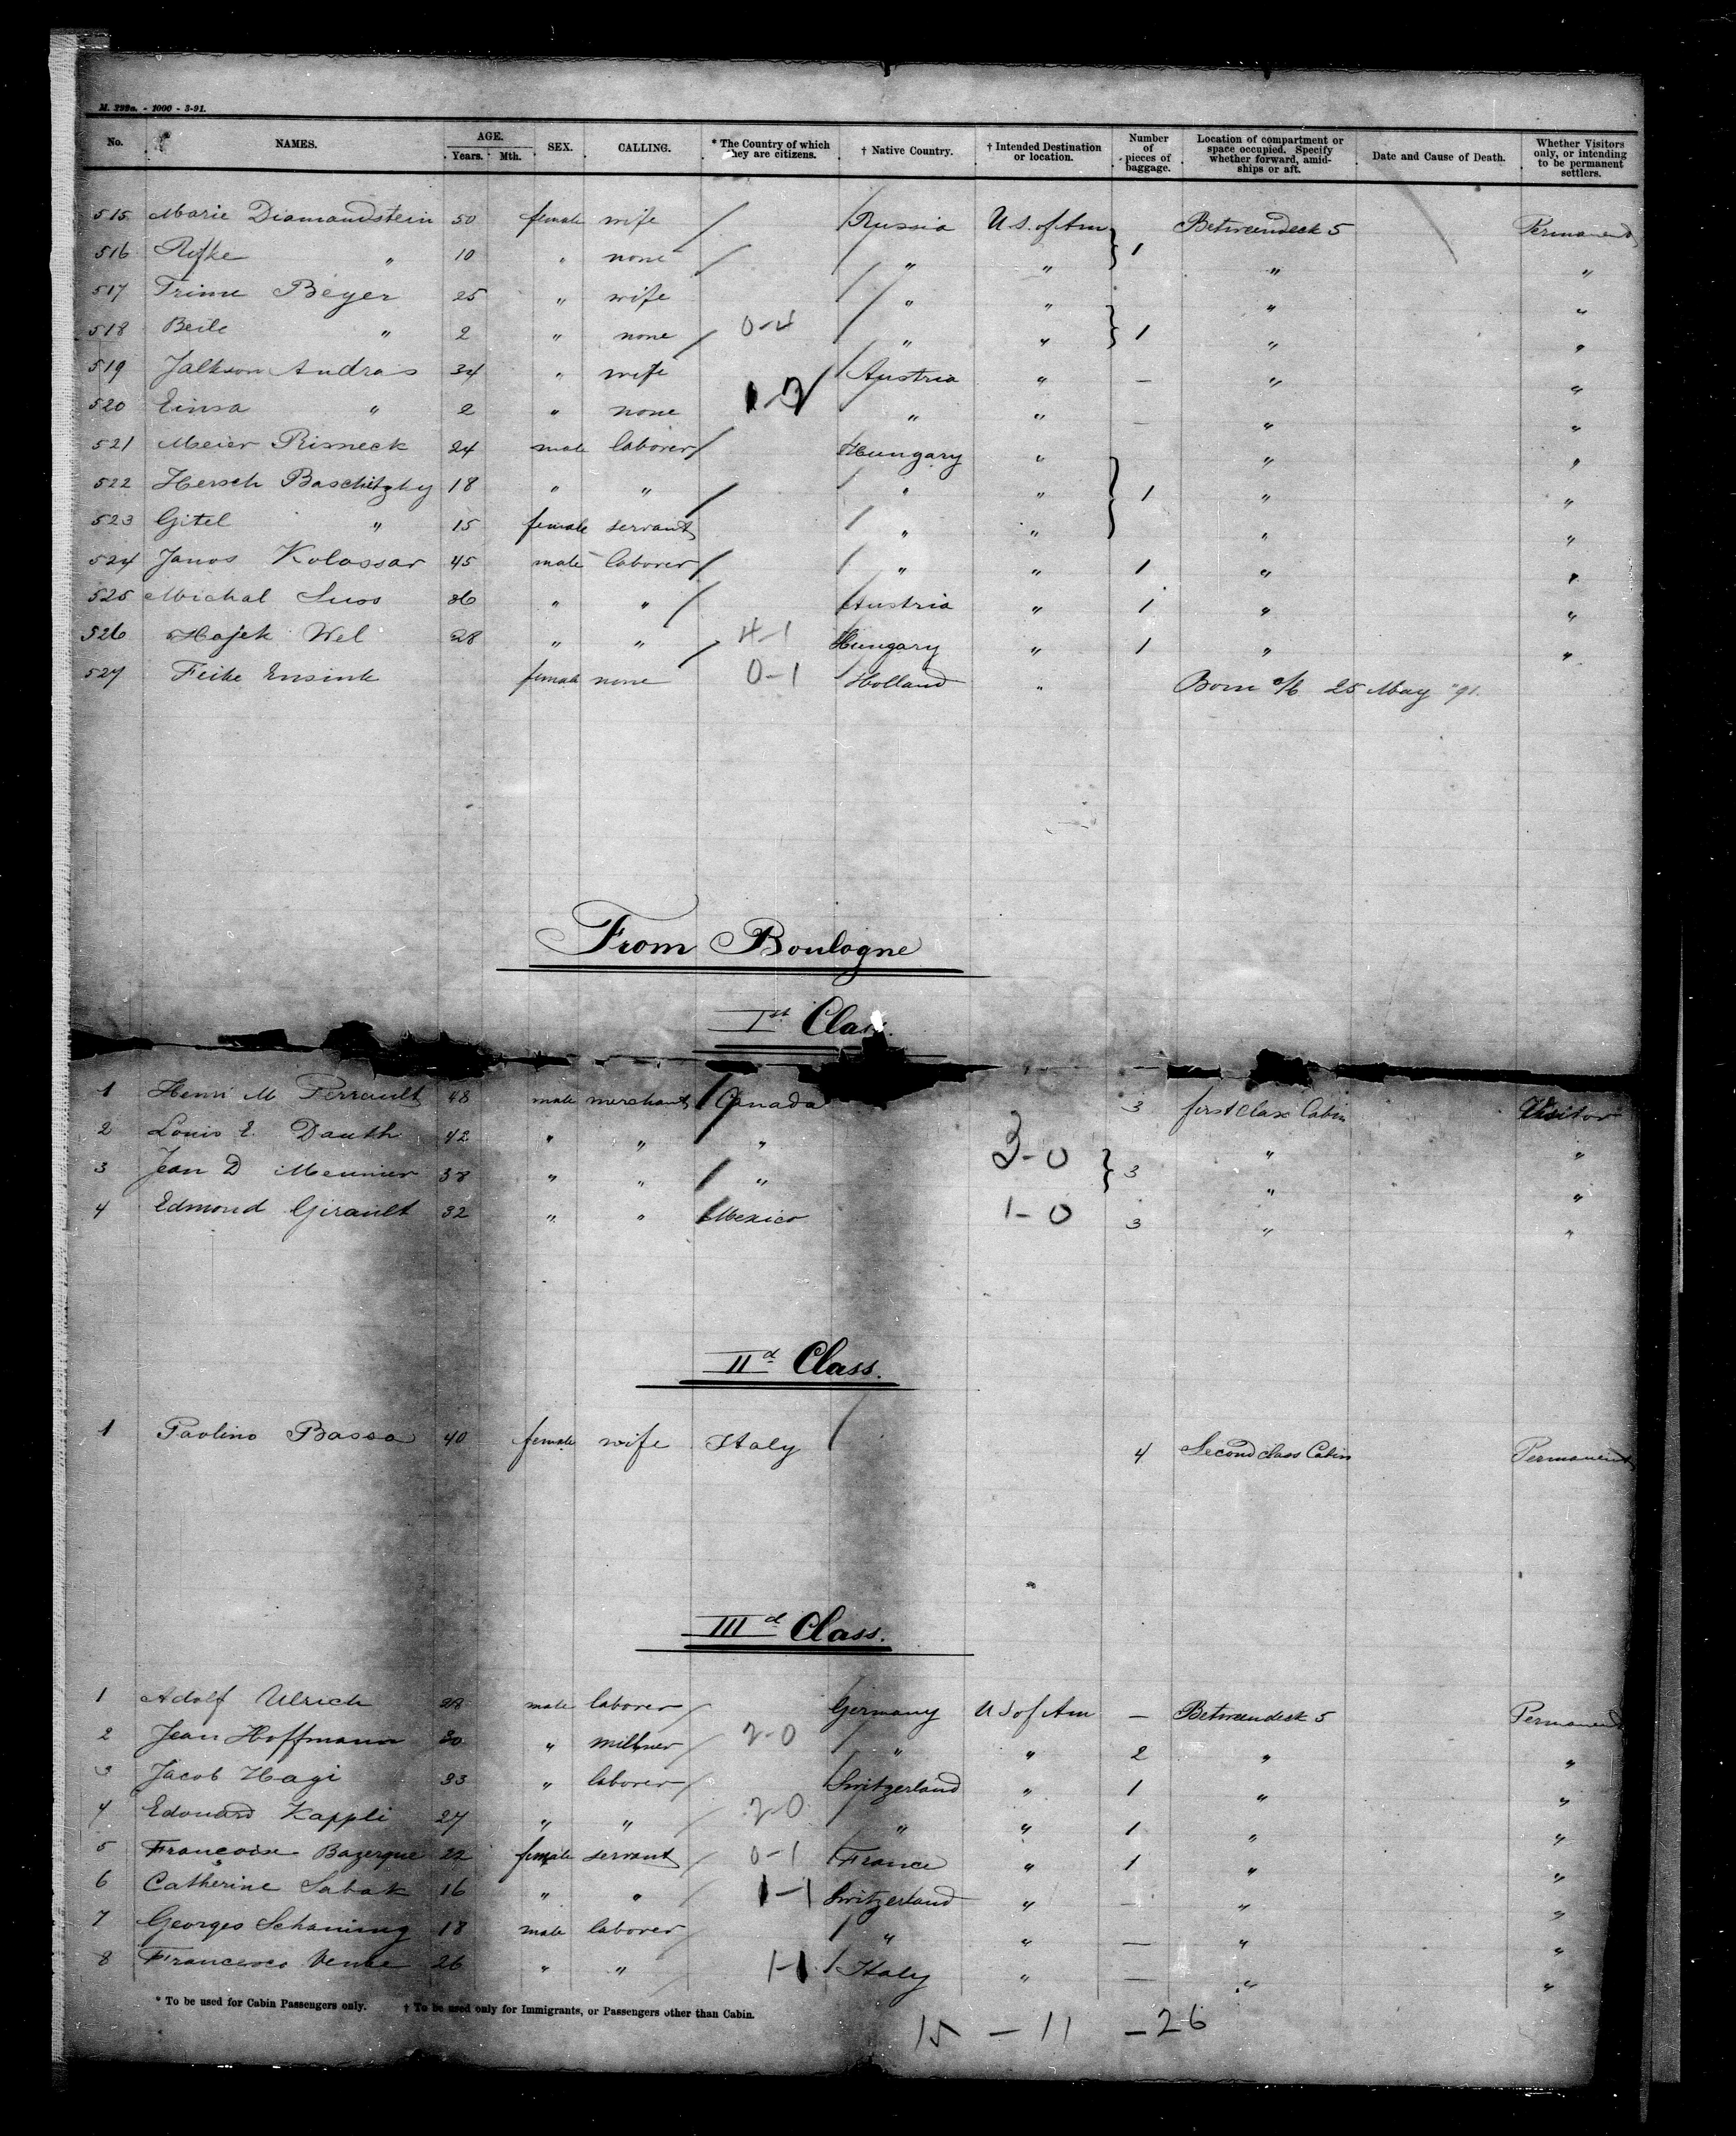 M. 299a. - 1000 - 3-91.
No. NAMES. AGE. Years. Mth. SEX. CALLING. * The Country of which they are citizens. † Native Country. † Intended Destination or location. Number of pieces of baggage. Location of compartment or space occupied. Specify whether forward, amidships or aft. Date and Cause of Death. Whether Visitors only, or intending to be permanent settlers.
515 Marie Diamandstein 50 female wife / Russia U.S. of Am Betweendeck 5 Permanent
516 Rifke " 10 " none / " " 1 " "
517 Trime Beyer 25 " wife / " " " "
518 Beile " 2 " none / 0-4 " " 1 " "
519 Jalkson Andras 34 " wife / Austria " — " "
520 Einsa " 2 " none 1-2 " " — " "
521 Meier Risneck 24 male laborer / Hungary " " "
522 Hersch Baschitzky 18 " " / " " 1 " "
523 Gitel " 15 female servant / " " " "
524 Janos Kolossar 45 male laborer / " " 1 " "
525 Michal Suos 36 " " / Austria " 1 " "
526 Hajek Wel 28 " " / 4-1 Hungary " 1 " "
527 Feike Ensink female none 0-1 Holland " Born o/b 25 May "91.
From Boulogne
Ist Class.
1 Henri M Perrault 48 male merchant / Canada 3 first class Cabin Visitor
2 Louis E. Dauth 42 " " " 3-0 " "
3 Jean D Meunier 38 " " / " 3 " "
4 Edmond Girault 32 " " / Mexico 1-0 3 " "
IId Class.
1 Paolino Basso 40 female wife Italy / 4 Second class Cabin Permanent
IIId Class.
1 Adolf Ulrich 28 male laborer / Germany U S of Am — Betweendeck 5 Permanent
2 Jean Hoffmann 30 " millner / 2-0 " " 2 " "
3 Jacob Hagi 33 " laborer / Switzerland " 1 " "
4 Edouard Kappli 27 " " / 2-0 " " 1 " "
5 Françoise Bazerque 22 female servant / 0-1 France " 1 " "
6 Catherine Sabak 16 " " / 1-1 Switzerland " — " "
7 Georges Schaning 18 male laborer / " " — " "
8 Francesco 26 " " 1-1 / Italy " — " "
* To be used for Cabin Passengers only. † To be used only for Immigrants, or Passengers other than Cabin.
15 — 11 — 26